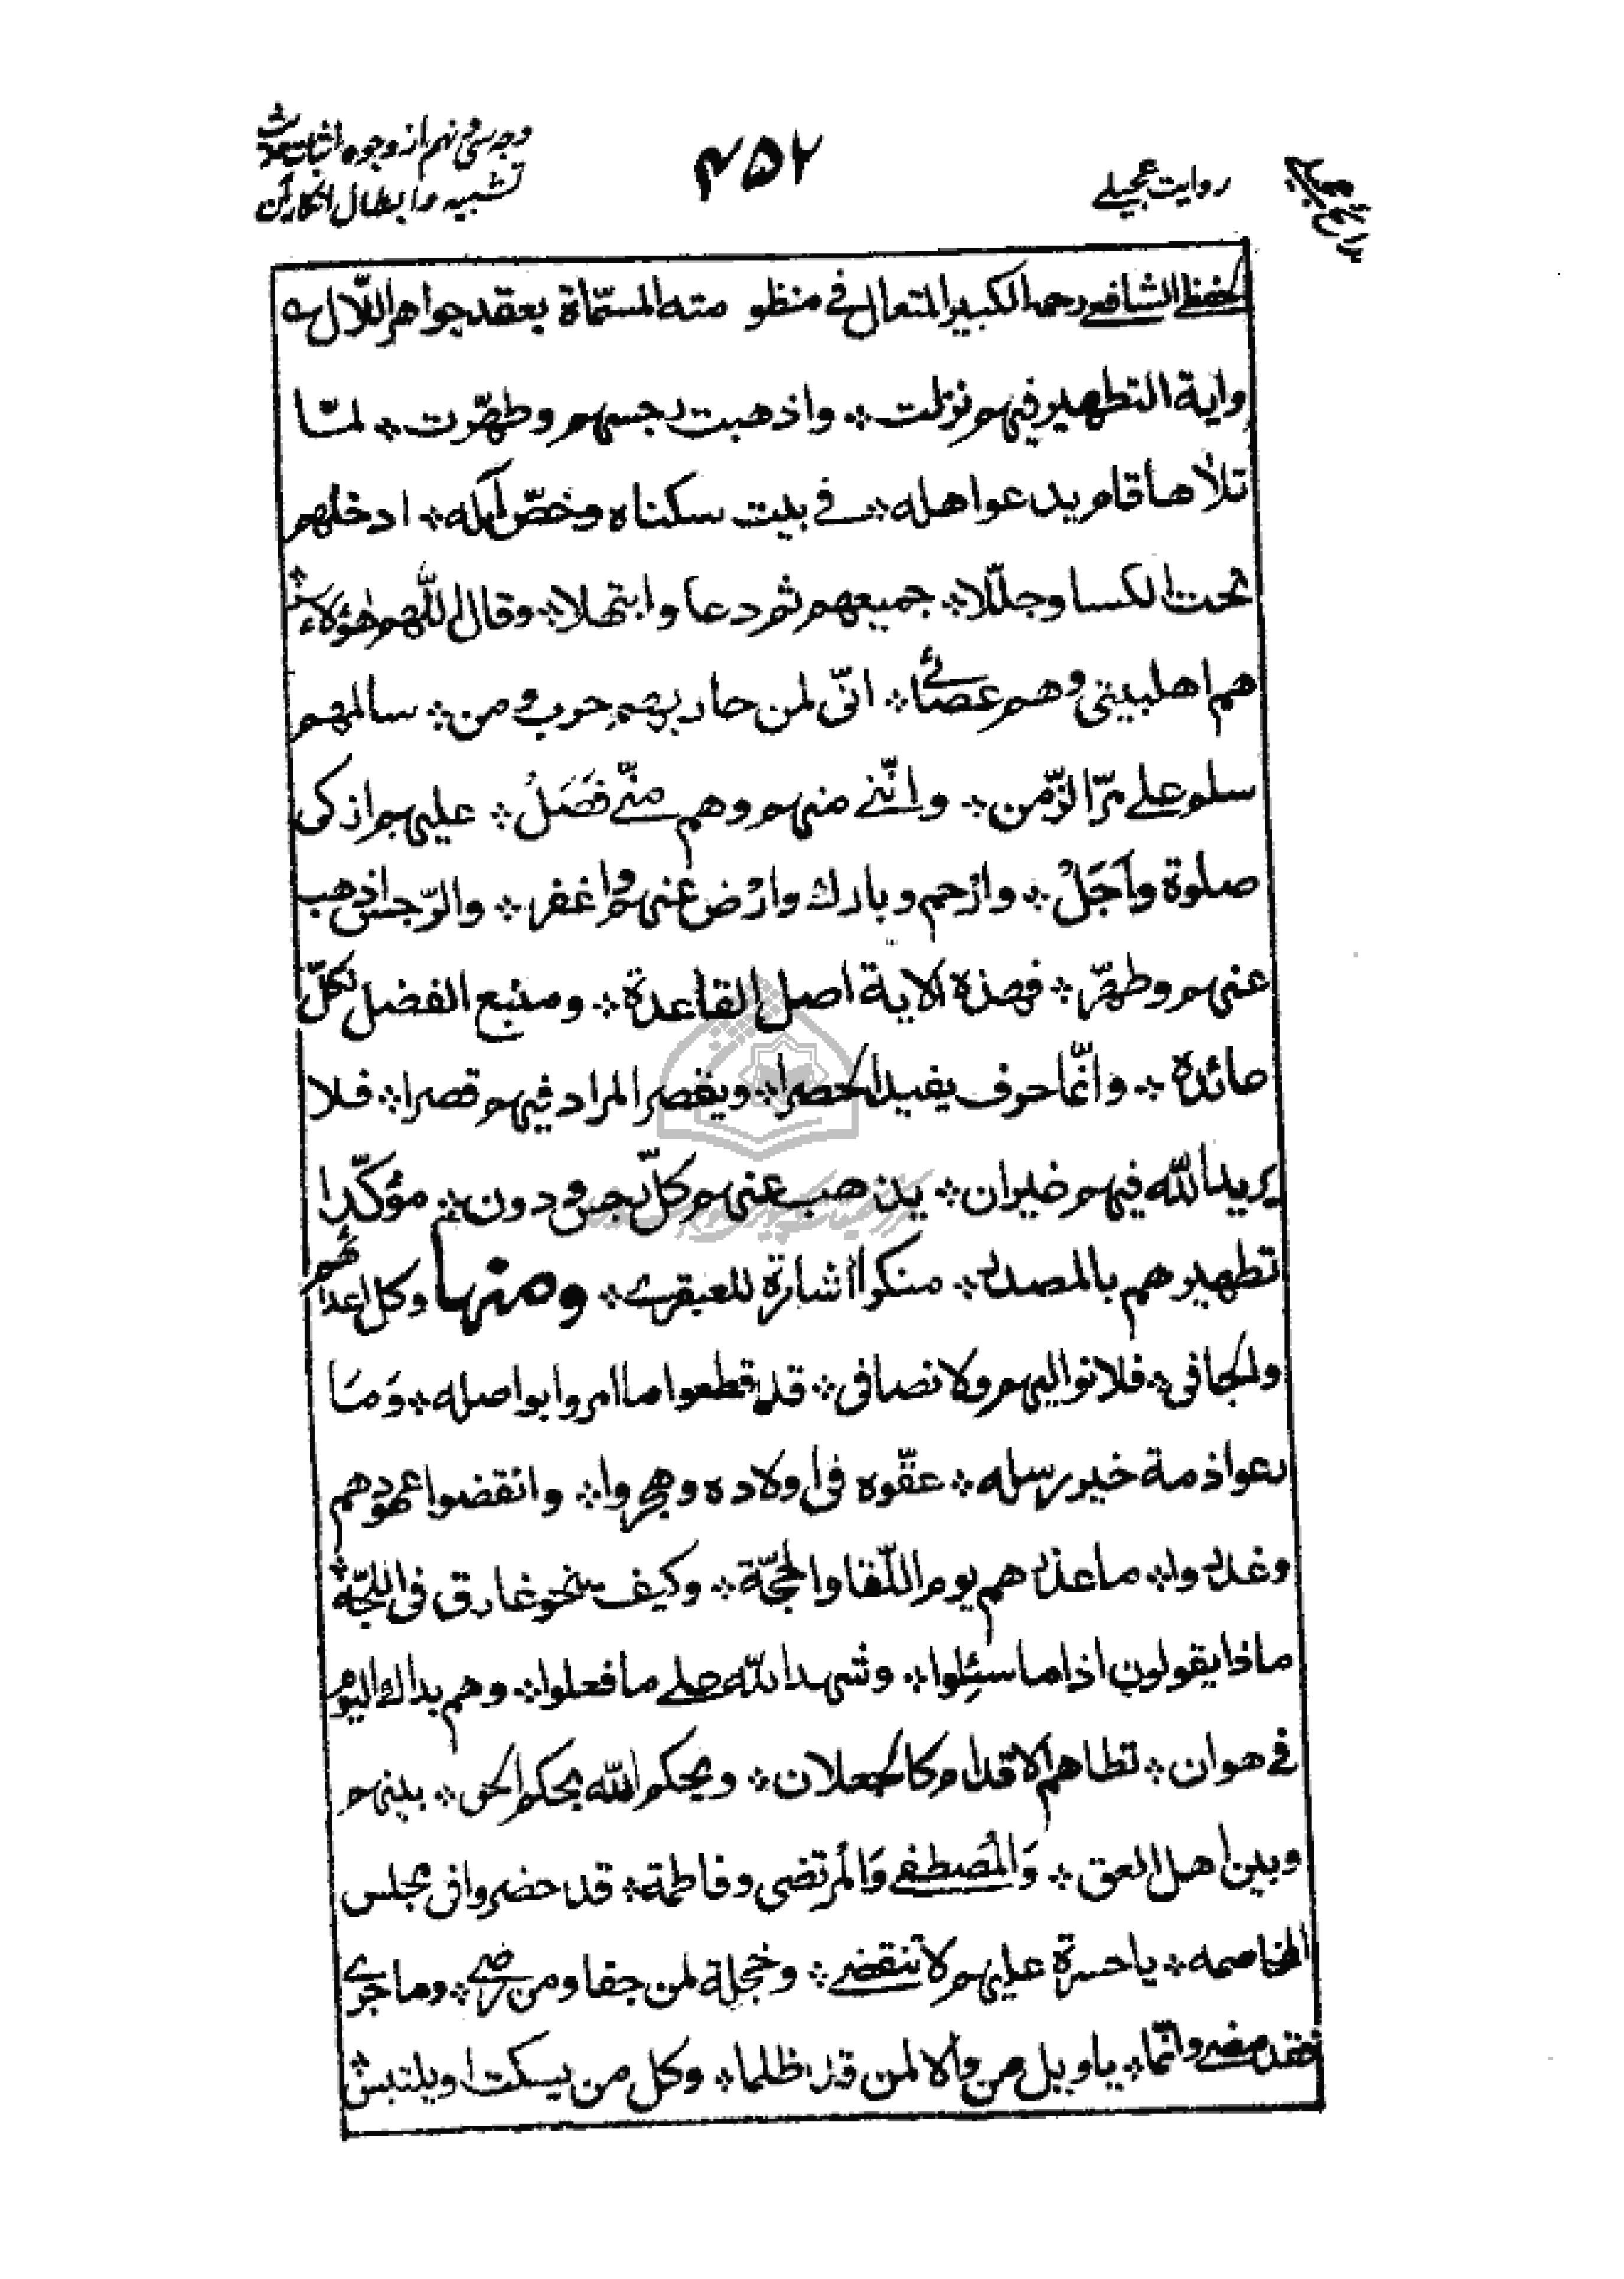 روایت عجیلے
۴۵۲
وجه سی و نهم از وجوه اثبات
تشبیه و ابطال انکار
الحفظی الشافعی رحمه الکبیر المتعال فی منظو مته المسمّاة بعقد جواهر اللّال ے
وایة التطهیر فیهم نزلت ⁘ واذهبت رجسهم وطهّرت ⁘ لمّا
تلاها قام یدعو اهله ⁘ فی بیت سکناه وخصّ آله ⁘ ادخلهم
تحت الکسا وجلّلا ⁘ جمیعهم ثم دعا وابتهلا ⁘ وقال اللّهم هؤلاء ⁘
هم اهلبیتی وهم عصائے ⁘ انّی لمن حاربهم حرب ومن ⁘ سالمهم
سلم علے مرّ الزّمن ⁘ وانّنے منهم وهم منّے فَصَلْ ⁘ علیهم ازکی
صلوة واَجَلْ ⁘ وارْحم وبارك وارْض عنهم واغفر ⁘ والرّجس اذهب
عنهم وطهّر ⁘ فهذه الایة اصل القاعدة ⁘ ومنبع الفضل لکلّ
مائدة ⁘ وانّما حرف یفید الحصرا ⁘ ویقصر المراد فیهم قصرا ⁘ فلا
یرید الله فیهم غیر ان ⁘ یذهب عنهم کلّ رجس ودرن ⁘ مؤکّدا
تطهیرهم بالمصدر ⁘ منکرا اشارة للعبقرے ⁘ ومنها وکل اعدائهم
والجافی ⁘ فلا نوالیهم ولا نصافی ⁘ قد قطعوا ما امروا بواصله ⁘ وَمَا
رعوا ذمة خیر رسله ⁘ عقّوه فی اولاده وهجروا ⁘ وانقضوا عهودهم
وغدروا ⁘ ما عذرهم یوم اللّقا والحجّة ⁘ وکیف ینجو غارق فی اللجّة ⁘
ماذا یقولون اذا ما سئِلوا ⁘ وشهد الله علے ما فعلوا ⁘ وهم بذاك الیوم
فی هوان ⁘ تطاهم الاقدام کالجعلان ⁘ ویحکم الله بحکم الحق ⁘ بینهم
وبین اهل العق ⁘ وَالْمُصطفے وَالْمرتضی وفاطمة ⁘ قد حضروا فی مجلس
المخاصمه ⁘ یا حسرة علیهم لا تنقضے ⁘ وخجلة لمن جفا ومن رضے ⁘ وما جرے
فقد مضے وانّما ⁘ یا ویل من والا لمن قد ظلما ⁘ وکل من یسکت او یلتبس ⁘